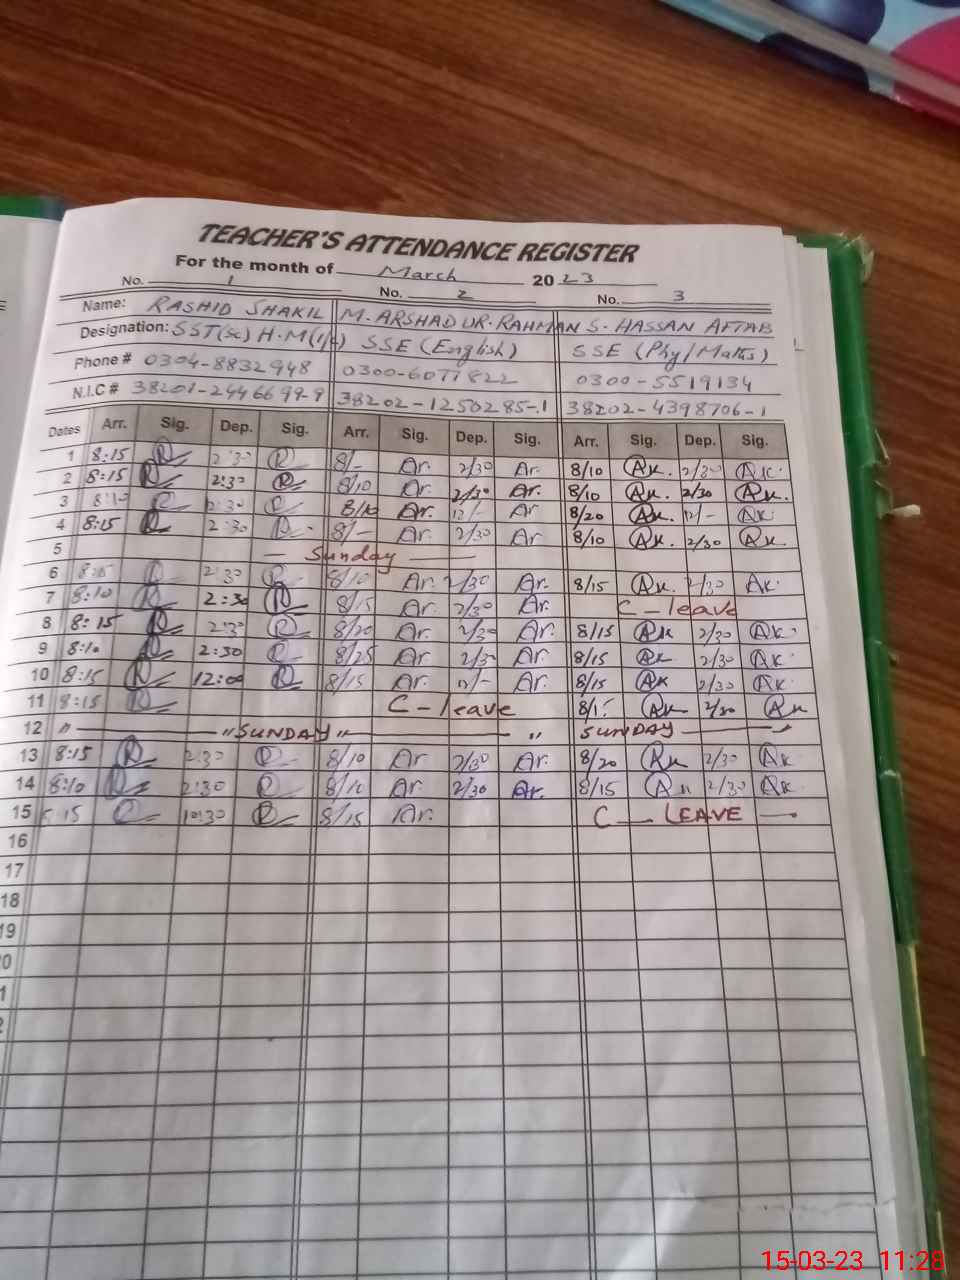 TEACHER'S ATTENDANCE REGISTER
For the month of March 2023
No. 1 No. 2 No. 3
Name: RASHID SHAKIL M. ARSHAD UR. RAHMAN S. HASSAN AFTAB
Designation: SST(Sc) H.M(I/C) SSE (English) SSE (Phy/Maths)
Phone # 0304-8832948 0300-6077822 0300-5519134
N.I.C # 38201-2446699-9 38202-1250285-1 38202-4398706-1
Dates Arr. Sig. Dep. Sig. Arr. Sig. Dep. Sig. Arr. Sig. Dep. Sig.
1 8:15 R 2:30 R 8/- Ar. 2/30 Ar. 8/10 Ak. 2/30 Ak.
2 8:15 R 2:30 R 8/10 Ar. 2/30 Ar. 8/10 Ak. 2/30 Ak.
3 8:10 R R 8/10 Ar. 12/- Ar 8/20 Ak. 12/- Ak.
4 8:15 R 2:30 R 8/- Ar. 2/30 Ar 8/10 Ak. 2/30 Ak.
5 — Sunday —
6 R 2:30 R 8/10 Ar. 2/30 Ar. 8/15 Ak. 2/30 Ak.
7 8:10 R 2:30 R 8/15 Ar. 2/30 Ar. C - leave
8 8:15 R 2:30 R 8/20 Ar. 2/30 Ar. 8/15 Ak 2/30 Ak.
9 8:10 R 2:30 R 8/25 Ar. 2/30 Ar. 8/15 Ak. 2/30 Ak.
10 8:15 R 12:00 R 8/15 Ar. 12/- Ar. 8/15 Ak 2/30 Ak.
11 8:15 R C - leave Ak 2/30 Ak
12 " — "SUNDAY" — " SUNDAY —
13 8:15 R 2:30 R 8/10 Ar. 2/30 Ar. 8/20 Ak 2/30 Ak
14 8:10 R 2:30 R Ar. 2/30 Ar. 8/15 Ak 2/30 Ak.
15 R 10:30 R 8/15 Ar. C — LEAVE —
16
17
18
19
15-03-23 11:28